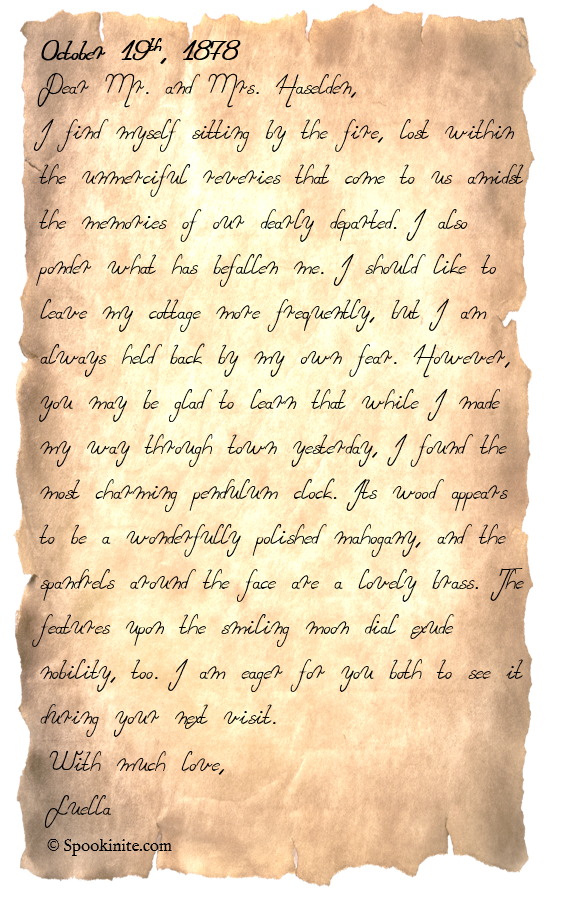 October 19th, 1878
Dear Mr. and Mrs. Haselden,
I find myself sitting by the fire, lost within
the unmerciful reveries that come to us amidst
the memories of our dearly departed. I also
ponder what has befallen me. I should like to
leave my cottage more frequently, but I am
always held back by my own fear. However,
you may be glad to learn that while I made
my way through town yesterday, I found the
most charming pendulum clock. Its wood appears
to be a wonderfully polished mahogany, and the
spandrels around the face are a lovely brass. The
features upon the smiling moon dial exude
nobility, too. I am eager for you both to see it
during your next visit.
With much love,
Luella
© Spookinite.com